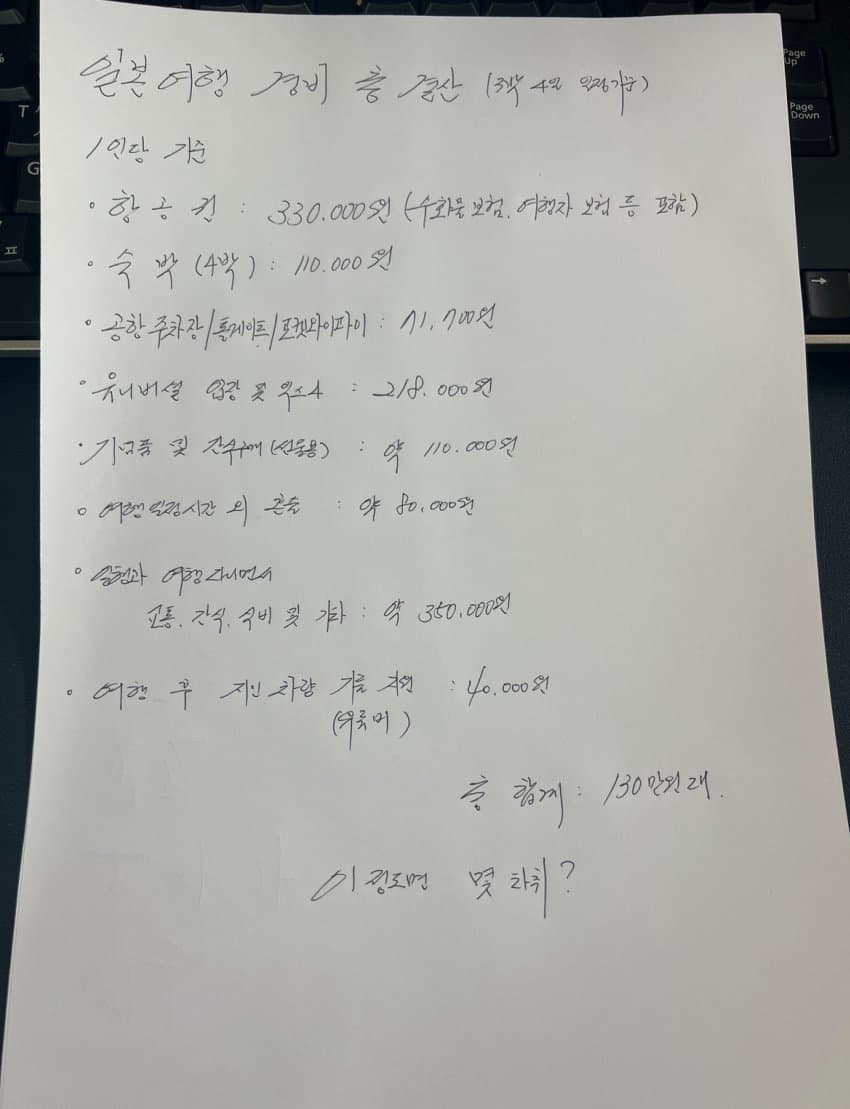 일본여행 경비 총 결산 (3박 4일 일정기준)
1인당 기준
• 항공권 : 330.000원 (수화물보험, 여행자 보험 등 포함)
• 숙박 (4박) : 110.000원
• 공항주차장/톨게이트/포켓와이파이 : 71,700원
• 유니버셜 입장 및 익스4 : 218.000원
• 기념품 및 간식구매(선물용) : 약 110.000원
• 여행일정시간 외 혼술 : 약 80.000원
• 일행과 여행다니면서
교통, 간식, 식비 및 기타 : 약 350.000원
• 여행 후 지인차량 기름 지원 : 40.000원
(유류비)
총 합계 : 130만원대.
이정도면 몇 타취?
Page Up
Page Down
T
G
ㅍ
→
%